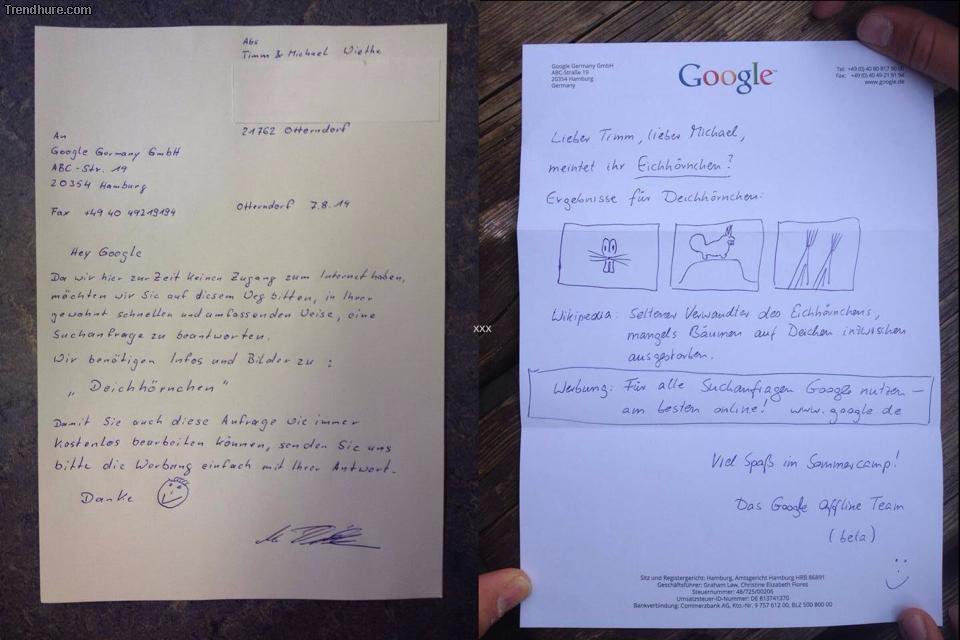 Trendhure.com
Abs
Timm & Michael Wiethe
21762 Otterndorf
An
Google Germany GmbH
ABC-Str. 19
20354 Hamburg
Fax +49 40 49219194
Otterndorf 7.8.14
Hey Google
Da wir hier zur Zeit keinen Zugang zum Internet haben,
möchten wir Sie auf diesem Weg bitten, in Ihrer
gewohnt schnellen und umfassenden Weise, eine
Suchanfrage zu beantworten.
Wir benötigen Infos und Bilder zu :
„Deichhörnchen"
Damit Sie auch diese Anfrage wie immer
kostenlos bearbeiten können, senden Sie uns
bitte die Werbung einfach mit Ihrer Antwort.
Danke
xxx
Google Germany GmbH
ABC-Straße 19
20354 Hamburg
Germany
Google
Tel: +49 (0) 40 80 817 90 00
Fax: +49 (0) 40 49 21 91 94
www.google.de
Lieber Timm, lieber Michael,
meintet ihr Eichhörnchen?
Ergebnisse für Deichhörnchen:
Wikipedia: Seltener Verwandter des Eichhörnchens,
mangels Bäumen auf Deichen inzwischen
ausgestorben.
Werbung: Für alle Suchanfragen Google nutzen –
am besten online! www.google.de
Viel Spaß im Sommercamp!
Das Google Offline Team
(beta)
Sitz und Registergericht: Hamburg, Amtsgericht Hamburg HRB 86891
Geschäftsführer: Graham Law, Christine Elizabeth Flores
Steuernummer: 48/725/00206
Umsatzsteuer-ID-Nummer: DE 813741370
Bankverbindung: Commerzbank AG, Kto.-Nr. 9 757 612 00, BLZ 500 800 00